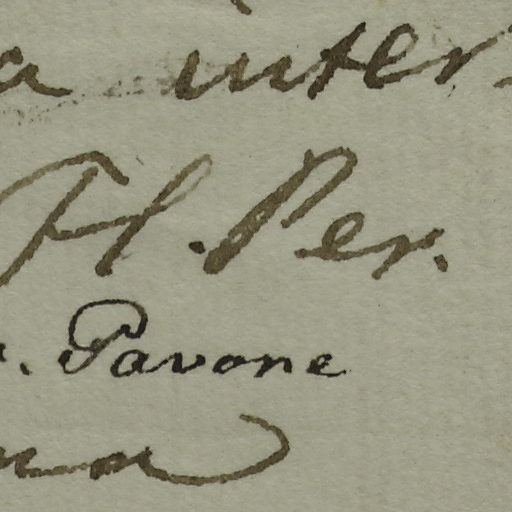 a inter
Fl. Per.
Pavone